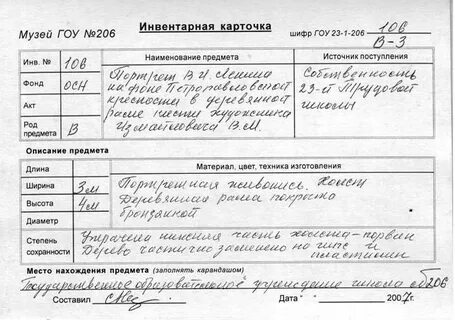 Музей ГОУ №206
Инвентарная карточка
шифр ГОУ 23-1-206 106
В-3
Инв. № 106
Фонд ОСН
Акт
Род предмета В
Наименование предмета
Портрет В.И. Ленина
на фоне Петропавловской
крепости в деревянной
раме кисти художника
Измайловича В.М.
Источник поступления
Собственность
23-й Трудовой
школы
Описание предмета
Длина
Ширина 3м
Высота 4м
Диаметр
Степень сохранности
Материал, цвет, техника изготовления
Портретная живопись. Холст
Деревянная рама покрыта
бронзянкой
Утрачена нижняя часть холста-порван
Дерево частично заменено на гипс и
пластилин
Место нахождения предмета (заполнять карандашом)
Государственное образовательное учреждение школа №206
Составил
Дата 2007г.